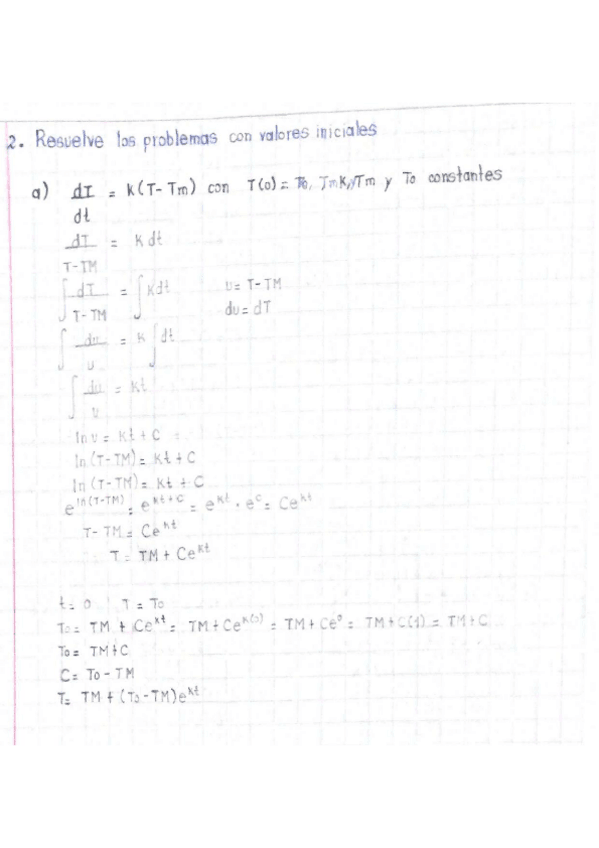 2. Resuelve los problemas con valores iniciales
a) dT/dt = K(T-Tm) con T(0)= To, Tm K, y Tm y To constantes
dT/T-TM = K dt
∫ dT/T-TM = ∫ Kdt u= T-TM
du= dT
∫ du/u = K ∫ dt
∫ du/u = Kt
ln u = Kt + C
ln (T-TM)= Kt + C
ln (T-TM)= Kt + C
e^ln(T-TM) = e^Kt+C = e^Kt · e^C = Ce^Kt
T-TM= Ce^Kt
T= TM + Ce^Kt
t= 0 T = To
To= TM + Ce^Kt = TM + Ce^K(0) = TM + Ce^0 = TM + C(1) = TM + C
To= TM+C
C= To - TM
T= TM + (To-TM)e^Kt